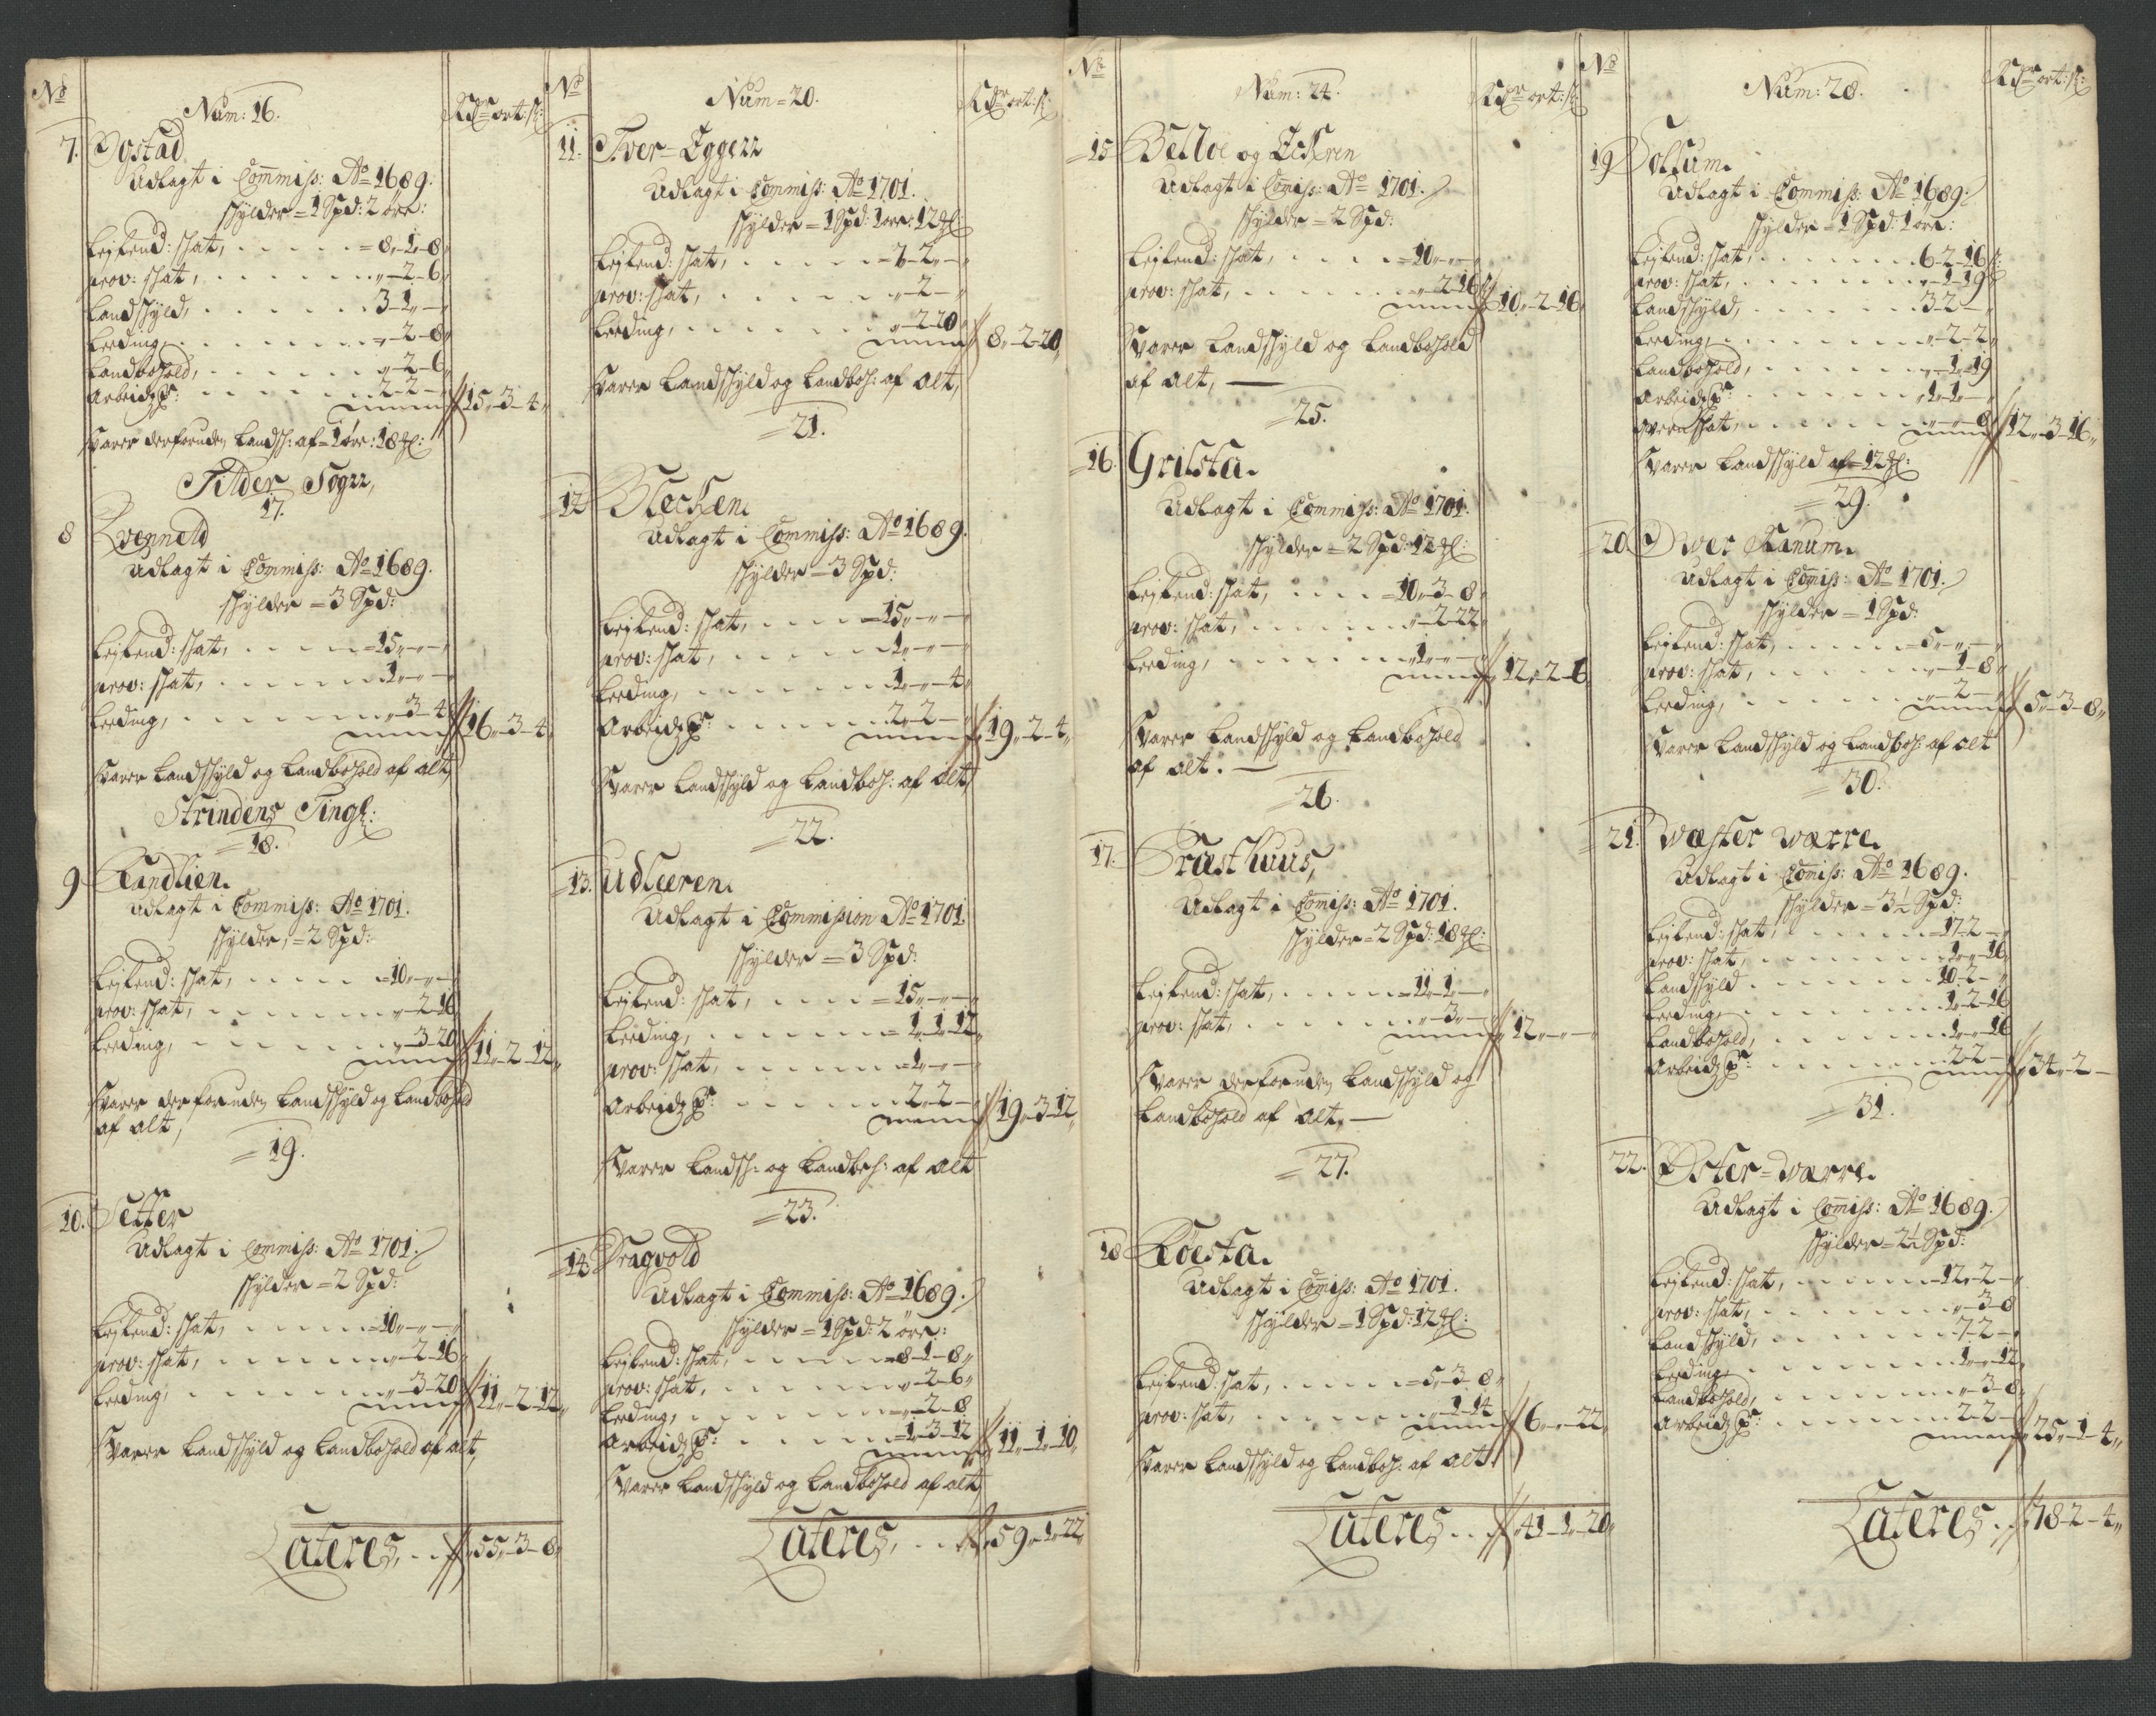 No
Num: 16.
Rdr ort: s:
7. Ogstad
Udlagt i Commiss: Ao 1689.
schÿlder = 1 Spd: 2 öre:
Leilend: schat, . . . . = 8,,-1-8,,
prov: schat, . . . . ,,-2-6,,
Landschÿld, . . . . 3-1,,-
Leeding, . . . . ,,-2-8,,
Landbohold, . . . . ,,-2-6,,
Arbeidzp: . . . . 2-2-
15,,-3-4,,
Svarer derforuden Landsch: af = 1 öre: 18
Tilder Sogn,
17.
8 Qvenneld
Udlagt i Commiss: Ao 1689.
schÿlder = 3 Spd:
Leilend: schat, . . . . = 15,,-,,-
prov: schat, . . . . 1,,-,,-
Leeding, . . . . ,,-3-4
16,,-3-4
Svarer Landschÿld og Landbohold af alt,
Strindens Tingl:
18.
9 Randlien.
Udlagt i Commiss: Ao 1701.
schÿlder, = 2 Spd:
Leilend: schat, . . . . = 10,,-,,-
prov: schat, . . . . ,,-2-16
Leeding, . . . . ,,-3-20
11,,-2-12,,
Svarer derforuden Landschÿld og Landbohold
af alt,
19.
10. Setter
Udlagt i Commiss: Ao 1701.
schÿlder = 2 Spd:
Leilend: schat, . . . . = 10,,-,,-
prov: schat, . . . . ,,-2-16
Leeding, . . . . ,,-3-20
11,,-2-12,,
Svarer Landschÿld og Landbohold af alt,
Lateres, . . 55,,-3-8,,
No
Num = 20.
Rdr ort: s:
11. Tver-Eggen
Udlagt i Commiss: Ao 1701.
schÿlder = 1 Spd: 1 öre: 12
Leilend: schat, . . . . = 7,,-2,,-
prov: schat, . . . . ,,-2-
Leeding, . . . . ,,-2-20
8,,-2-20,,
Svarer Landschÿld og Landboh: af alt,
21.
12 Blecken.
Udlagt i Commiss: Ao 1689.
schÿlder = 3 Spd:
Leilend: schat, . . . . = 15,,-,,-
prov: schat, . . . . 1,,-,,-
Leeding, . . . . 1,,-,,-4,,
Arbeidzp: . . . . 2,,-2-
19,,-2-4,,
Svarer Landschÿld og Landboh: af alt,
22.
13. Udleeren.
Udlagt i Commission Ao 1701.
schÿlder = 3 Spd:
Leilend: schat, . . . . = 15,,-,,-
Leeding, . . . . = 1,,-1-12,,
prov: schat, . . . . = 1,,-,,-
Arbeidzp: . . . . 2,,-2-
19,,-3-12
Svarer Landsch: og Landboh: af alt
23.
14. Dragvold
Udlagt i Commiss: Ao 1689.
schÿlder = 1 Spd: 2 öre:
Leilend: schat, . . . . = 8-1-8,,
prov: schat, . . . . ,,-2-6,,
Leeding, . . . . ,,-2-8
Arbeidzp: . . . . = 1,,-3-12
11,,-1-10,,
Svarer Landschÿld og Landbohold af alt,
Lateres, . . 59,,-1-22
No
Num: 24.
Rdr ort: s:
15 Belloe og Eckren
Udlagt i Comiss: Ao 1701.
schÿlder = 2 Spd:
Leilend: schat, . . . . = 10,,-,,-
prov: schat, . . . . ,,-2-16
10,,-2-16,,
Svarer Landschÿld og Landbohold
af alt, —
25.
16. Grilsta.
Udlagt i Commiss: Ao 1701.
schÿlder = 2 Spd: 12
Leilend: schat, . . . . = 10,,-3-8
prov: schat, . . . . ,,-2-22
Leeding, . . . . ,,1,,-,,-
12,,-2-6
Svarer Landschÿld og Landbohold
af alt. —
26.
17. Præsthuus,
Udlagt i Comiss: Ao 1701.
schÿlder = 2 Spd: 18
Leilend: schat, . . . . = 11,,-1,,-
prov: schat, . . . . ,,-3,,-
12,,-,,-
Svarer derforuden Landschÿld og
Landbohold af alt, —
27.
18 Röesta.
Udlagt i Comiss: Ao 1701.
schÿlder = 1 Spd: 12
Leilend: sat, . . . . = 5,,-3-8,,
prov: sat, . . . . ,,-1-14
6,,-,,-22
Svarer Landschÿld og Landboh: af alt
Lateres . . 41-1-20,,
No
Num: 28.
Rdr ort: s:
19 Dollum.
Udlagt i Commiss: Ao 1689.
schÿlder = 1 Spd: 1 öre:
Leilend: schat, . . . . 6-2-16
prov: schat, . . . . ,,-1-19
Landschÿld, . . . . 3-2-
Leeding, . . . . ,,-2-2
Landbohold, . . . . ,,-1-19
Arbeidzp: . . . . ,,1-1-
qvernschat, . . . . ,,-,,-8
12,,-3-16,,
Svarer Landschÿld af = 12
29.
20. Over Ranum.
Udlagt i Comiss: Ao 1701.
schÿlder = 1 Spd:
Leilend: schat, . . . . = 5,,-,,-
prov: schat, . . . . ,,-1-8
Leeding, . . . . ,,-2-
5,,-3-8,,
Svarer Landschÿld og Landboh: af alt
30.
21. Wæster Warre.
Udlagt i Comiss: Ao 1689.
schÿlder = 3½ Spd:
Leilend: schat, . . . . = 17-2-
prov: schat, . . . . 1,,-,,-16
Landschÿld . . . . 10-2-
Leeding, . . . . 1,,-2-16
Landbohold, . . . . 1,,-,,-16
Arbeidzp: . . . . 2-2-
34,,-2-
31.
22. Öster-Warre.
Udlagt i Comiss: Ao 1689.
schÿlder = 2½ Spd:
Leilend: schat, . . . . 12,,-2-
prov: schat, . . . . ,,-3-8
Landschÿld, . . . . 7-2-
Leeding, . . . . 1,,-,,-12,,
Landbohold, . . . . ,,-3-8
Arbeidzp: . . . . 2-2-
25,,-1-4,,
Lateres . . 78-2-4,,